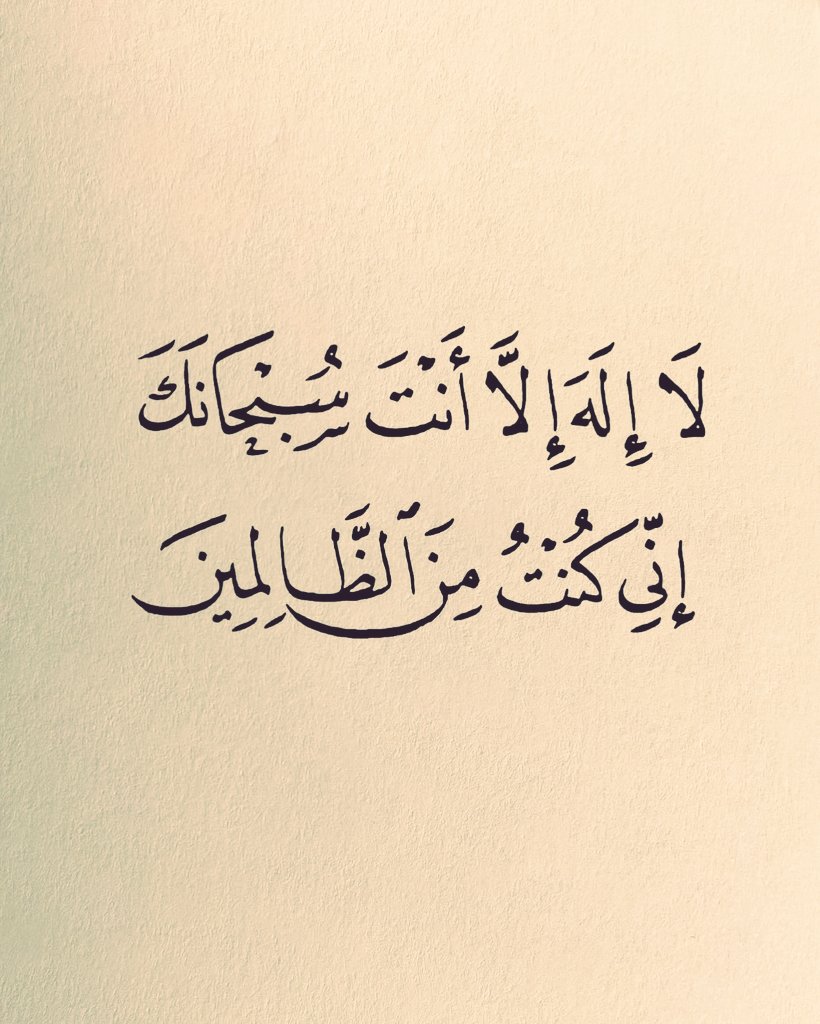 لَا إِلَهَ إِلَّا أَنْتَ سُبْحَانَكَ
إِنِّي كُنْتُ مِنَ ٱلظَّالِمِينَ